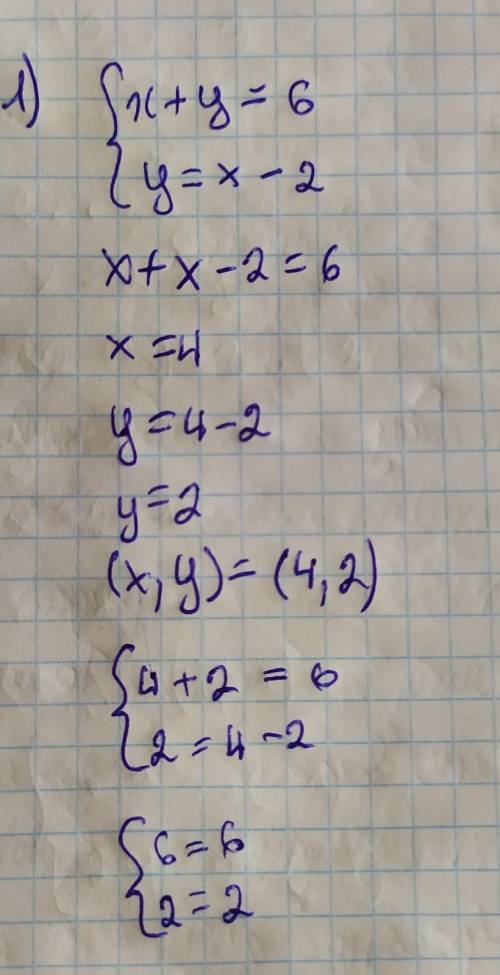 1) x+y=6
y=x-2
x+x-2=6
x=4
y=4-2
y=2
(x,y)=(4,2)
4+2=6
2=4-2
6=6
2=2